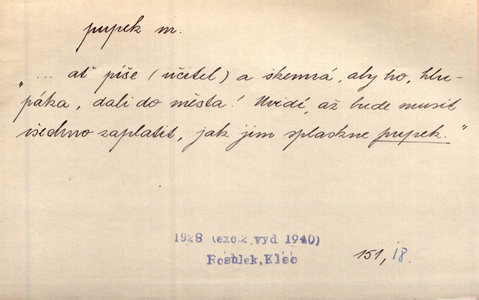 pupek m.
„... ať píše (učitel) a škemrá, aby ho, hlu-
páka, dali do města! Uvidí, až bude musit
všechno zaplatit, jak jim splaskne pupek.“
1928 (exc.z vyd 1940)
Kléč
151, 18.